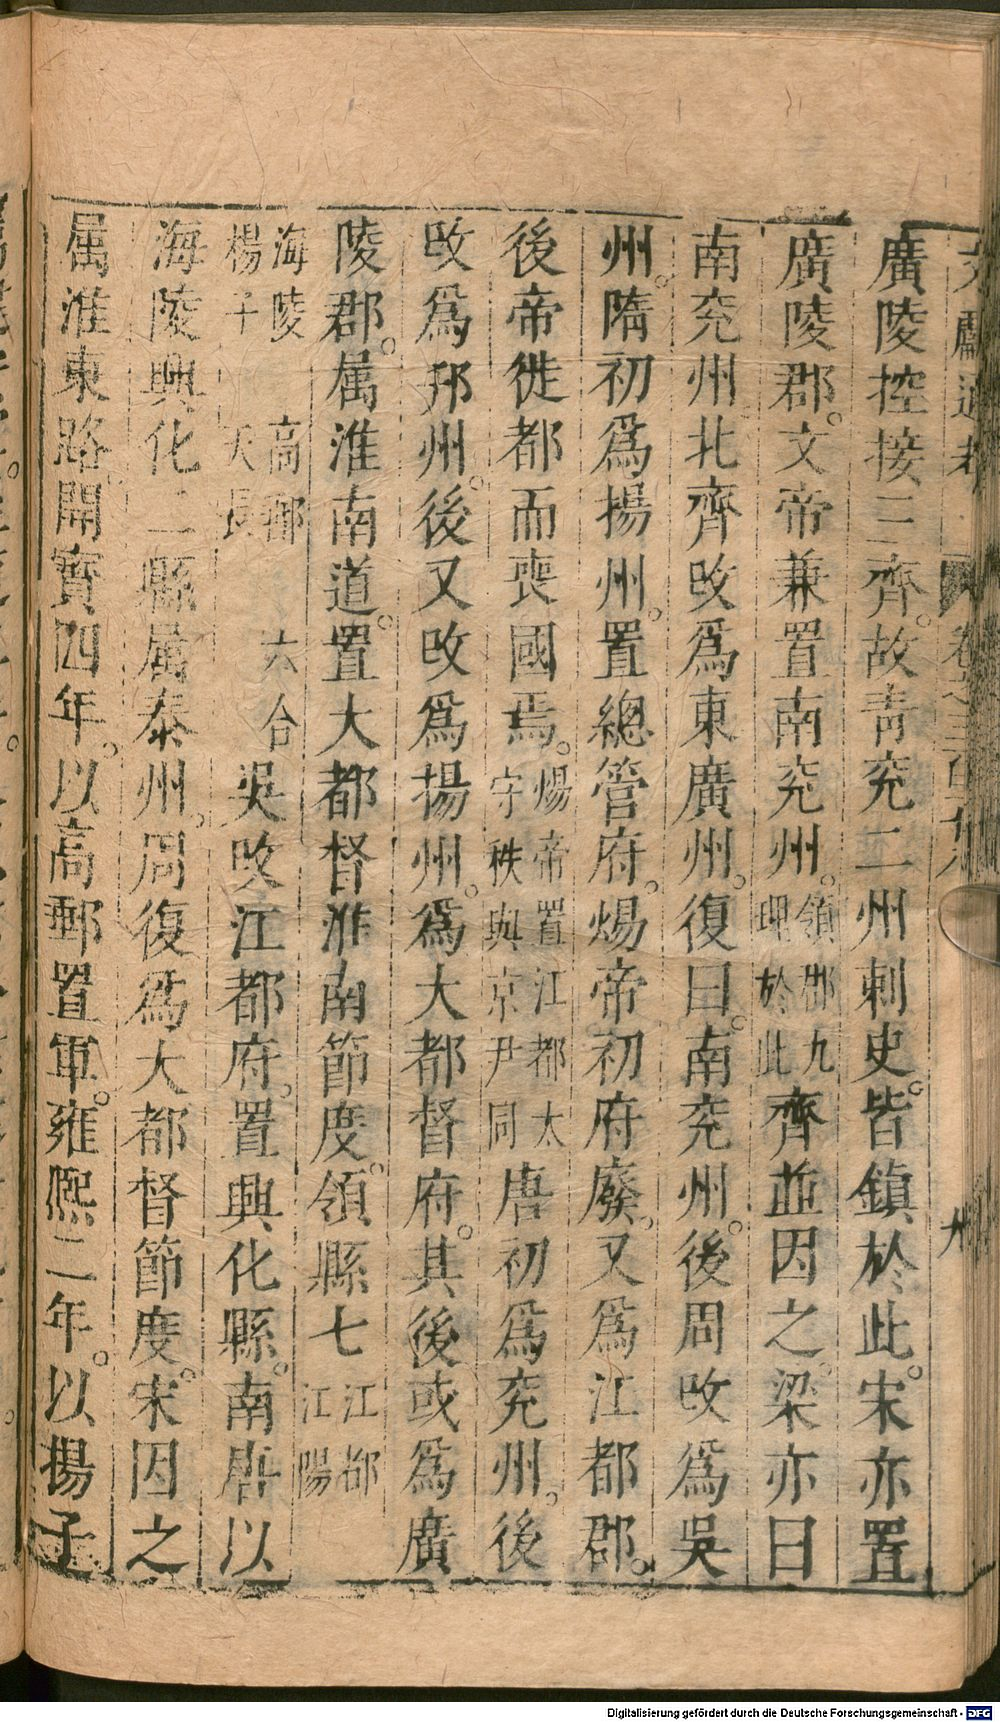 文獻通考 卷之三百十八 九
廣陵控接三齊。故青兖二州刺史。皆鎮於此。宋亦置
廣陵郡。文帝兼置南兖州。領郡九理於此齊並因之。梁亦曰
南兖州北齊攺爲東廣州。復曰。南兖州。後周攺爲吳
州。隋初爲揚州。置總管府。煬帝初府廢。又爲江都郡。
後帝徙都而喪國焉。煬帝置江都太守秩與京尹同唐初爲兖州。後
攺爲邗州。後又攺爲揚州。爲大都督府。其後或爲廣
陵郡。属淮南道。置大都督淮南節度。領縣七江都江陽
海陵楊子高郵天長六合吳攺江都府。置興化縣。南唐以
海陵興化二縣属泰州。周復爲大都督節度。宋因之
属淮東路。開寳四年。以高郵置軍。雍熙二年。以揚子
Digitalisierung gefördert durch die Deutsche Forschungsgemeinschaft - DFG